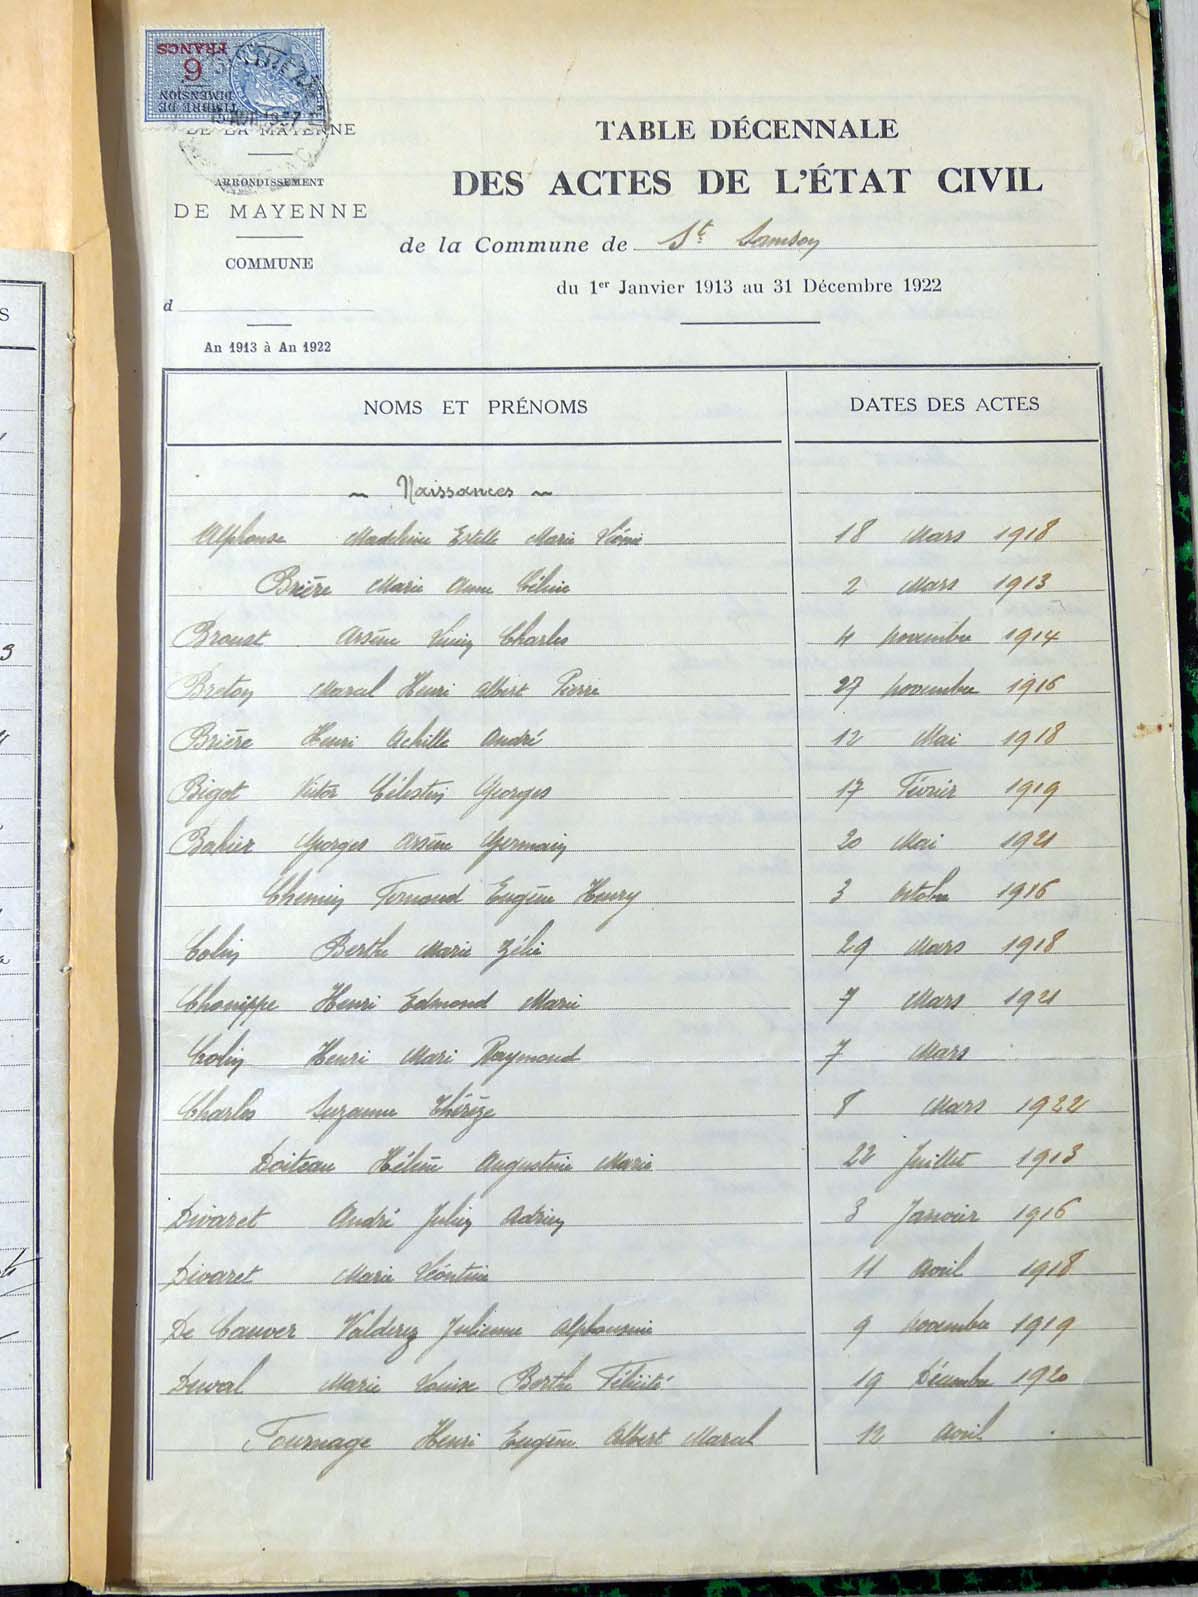 TIMBRE DE
DIMENSION
6
FRANCS
DE LA MAYENNE
ARRONDISSEMENT
DE MAYENNE
COMMUNE
d
An 1913 à An 1922
TABLE DÉCENNALE
DES ACTES DE L'ÉTAT CIVIL
de la Commune de St Samson
du 1er Janvier 1913 au 31 Décembre 1922
NOMS ET PRÉNOMS DATES DES ACTES
~ Naissances ~
Alphonse Madeleine Estelle Marie Léonie 18 Mars 1918
Brière Marie Anne Céline 2 Mars 1913
Broust Arsène Victor Charles 4 novembre 1914
Breton Marcel Henri Albert Pierre 27 novembre 1916
Brière Henri Achille André 12 Mai 1918
Bigot Victor Célestin Georges 17 Février 1919
Bahier Georges Arsène Germain 20 Mai 1921
Chemin Fernand Eugène Henry 3 octobre 1916
Colin Berthe Marie Zélie 29 Mars 1918
Chonippe Henri Edmond Marie 7 Mars 1921
Colin Henri Mari Raymond 7 Mars
Charles Suzanne Thérèze 8 Mars 1922
Doiteau Hélène Augustine Marie 22 Juillet 1913
Divaret André Julien Adrien 3 Janvier 1916
Divaret Marie Léontine 11 Avril 1918
De Cauwer Valdérez Julienne Alphonsine 9 novembre 1919
Duval Marie Louise Berthe Félicité 19 Décembre 1920
Fournage Henri Eugène Albert Marcel 12 Avril